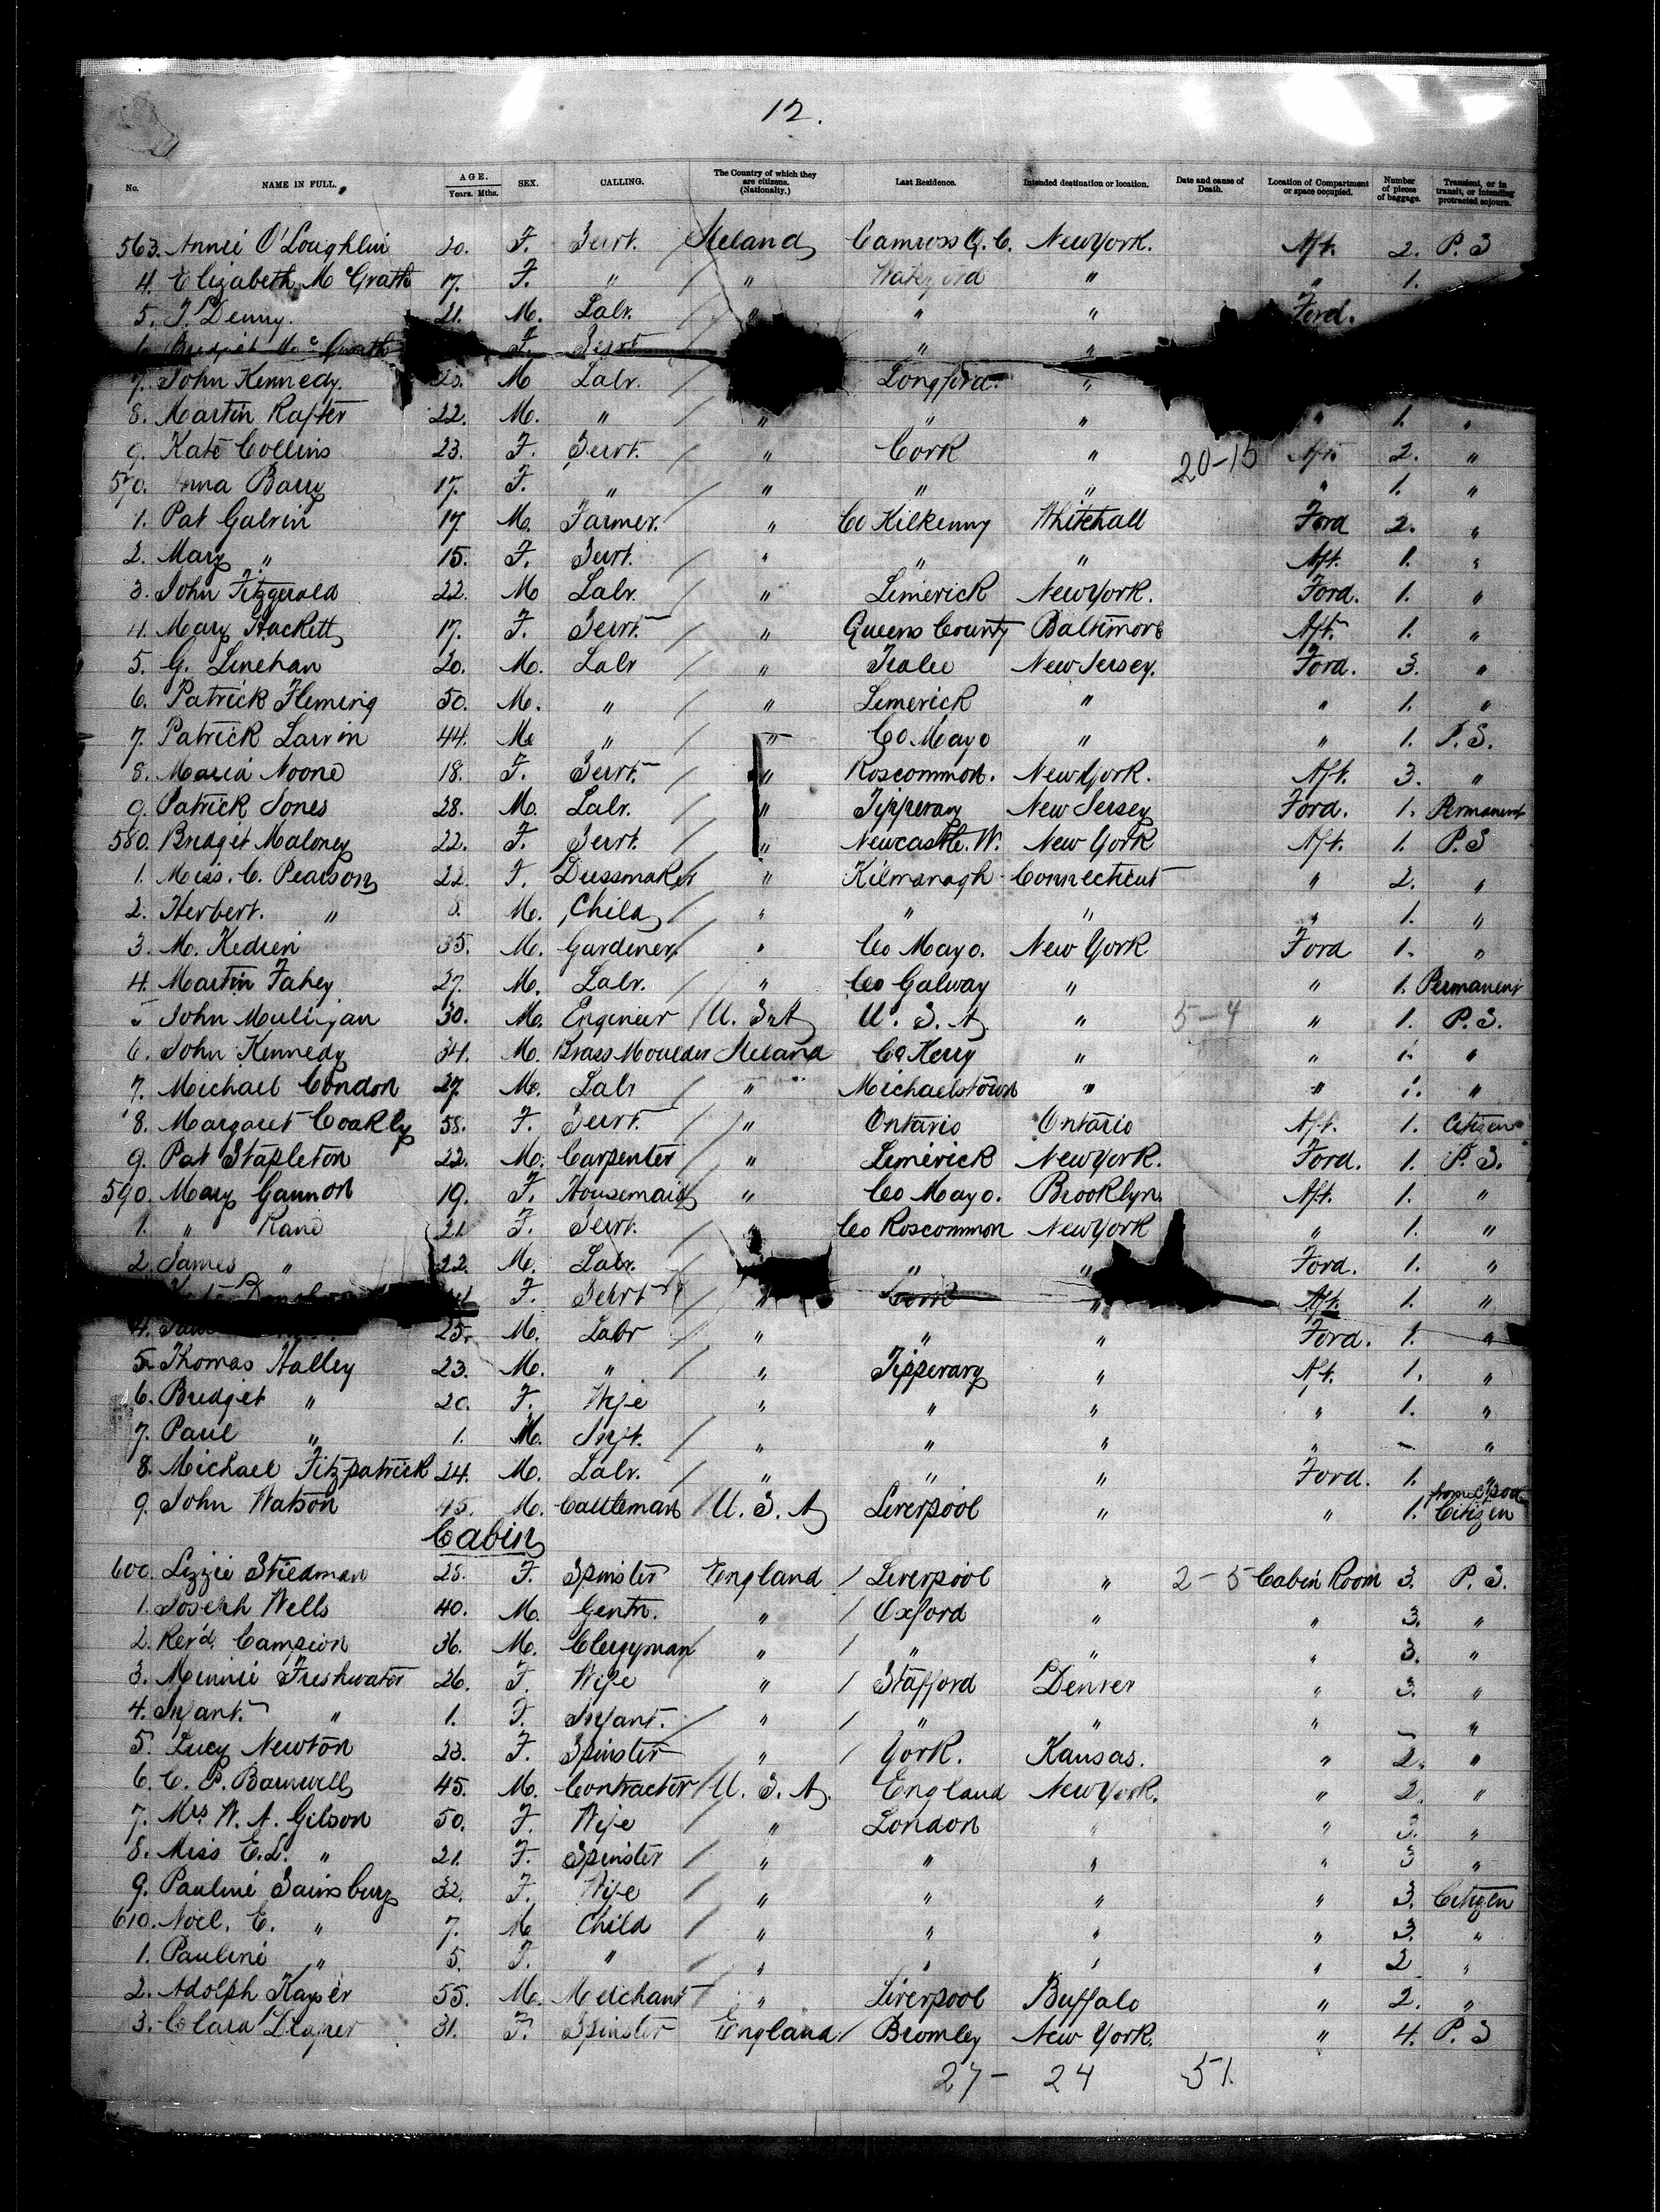 12.
No. NAME IN FULL. AGE. Years. Mths. SEX. CALLING. The Country of which they are citizens. (Nationality.) Last Residence. Intended destination or location. Date and cause of Death. Location of Compartment or space occupied. Number of pieces of baggage. Transient, or in transit, or intending protracted sojourn.
563. Annie O'Loughlin 20. F. Servt. Ireland Camross Q. C. New York. Aft. 2. P. S
4. Elizabeth McGrath 17. F. " / " Waterford " " 1.
5. J. Denny. 21. M. Labr. / " " " Ford.
6. Bridget McGrath F. Servt " "
7. John Kennedy. 23. M Labr. / Longford. "
8. Martin Rafter 22. M. " / " " " " 1. "
9. Kate Collins 23. F. Servt. / " Cork " 20-15 Aft. 2. "
570. Anna Barry 17. F. " / " " " " 1. "
1. Pat Galvin 17 M. Farmer. " Co Kilkenny Whitehall Ford 2. "
2. Mary " 15. F. Servt. / " " " Aft. 1. "
3. John Fitzgerald 22. M Labr. / " Limerick New York. Ford. 1. "
4. Mary Hackett 17. F. Servt. / " Queens County Baltimore Aft. 1. "
5. G. Linehan 20. M. Labr / " Tralee New Jersey. Ford. 3. "
6. Patrick Fleming 50. M. " / " Limerick " " 1. "
7. Patrick Larvin 44. M. " / " Co Mayo " " 1. P. S.
8. Maria Noone 18. F. Servt. / " Roscommon. New York. Aft. 3. "
9. Patrick Jones 28. M. Labr. / " Tipperary New Jersey Ford. 1. Permanent
580. Bridget Maloney 22. F. Servt. / " Newcastle. W. New York Aft. 1. P. S
1. Miss. C. Pearson 22. F. Dressmaker " Kilmanagh Connecticut " 2. "
2. Herbert. " 8. M. Child / " " " " 1. "
3. M. Kedien 35. M. Gardener / " Co Mayo. New York Ford 1. "
4. Martin Fahey 27. M. Labr. / " Co Galway " " 1. Permanent
5 John Mulligan 30. M. Engineer / U. S. A U. S. A. " 5-4 " 1. P. S.
6. John Kennedy 34. M. Brass Moulder Ireland Co Kerry " " 1. "
7. Michael Condon 27. M. Labr / " Michaelstown " " 1. "
8. Margaret Coakly 58. F. Servt. / " Ontario Ontario Aft. 1. Citizen
9. Pat Stapleton 22. M. Carpenter / " Limerick New York. Ford. 1. P. S.
590. Mary Gannon 19. F. Housemaid " Co Mayo. Brooklyn. Aft. 1. "
1. " Kane 21. F. Servt. / " Co Roscommon New York " 1. "
2. James " 22. M. Labr. / " " Ford. 1. "
F. Servt / " Cork " Aft. 1. "
4. 25. M. Labr / " " " Ford. 1. "
5. Thomas Halley 23. M. " / " Tipperary " Aft. 1. "
6. Bridget " 20. F. Wife " " " " 1. "
7. Paul " 1. M. Inft. / " " " " - "
8. Michael Fitzpatrick 24. M. Labr. / " " " Ford. 1. "
9. John Watson 45. M. Cattleman / U. S. A Liverpool " " 1. Citizen
Cabin
600. Lizzie Stiedman 28. F. Spinster England / Liverpool " 2-5 Cabin Room 3. P. S.
1. Joseph Wells 40. M. Gentn. " / Oxford " 3. "
2. Rev'd. Campion 36. M. Clergyman " / " " " 3. "
3. Minnie Freshwater 26. F. Wife " / Stafford Denver " 3. "
4. Infant. " 1. F. Infant. / " / " " " - "
5. Lucy Newton 23. F. Spinster " / York. Kansas. " 2. "
6. C. P. Barnwell 45. M. Contractor / U. S. A. England New York. " 2. "
7. Mrs W. A. Gilson 50. F. Wife / " London " " 3. "
8. Miss E. L. " 21. F. Spinster / " " " " 3 "
9. Pauline Sainsbury 32. F. Wife / " " " " 3. Citizen
610. Noel. E. " 7. M Child / " " " " 3. "
1. Pauline " 5. F. " / " " " " 2 "
2. Adolph Kayser 55. M. Merchant / " Liverpool Buffalo " 2. "
3. Clara Draper 31. F. Spinster England / Bromley New York. " 4. P. S
27- 24 51.